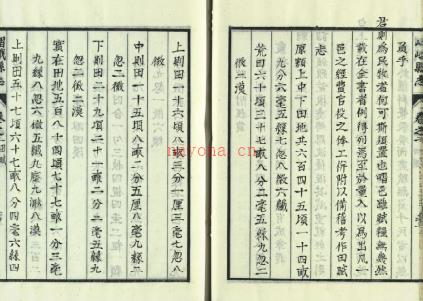 及乎
君剌爲民牧者何可斯須置也嵋邑雖賦糧無幾然
載在全書者例得列焉至於量入以爲出凡一
邑之經費官役之俸工併附以備稽考作田賦
志
原額上中下田地共六百四十五頃一十四畝
九分六毫五絲七忽八微六纖
荒田六十頃三十七畝八分二毫五絲九忽二
微二漠
上則田一十六頃八畝三分一厘三毫七忽八
微
中則田一十五頃八畝二分八厘九毫九絲二
忽三微
下則田二十九頃二十一畝二分二毫五絲九
忽二微二漠
實在田地五百八十四頃七十七畝一分三毫
九絲八忽六微五纖九塵九渺八漠
上則田五十七頃七十七畝八分四毫六絲四
峨嵋縣志
nayona.cn